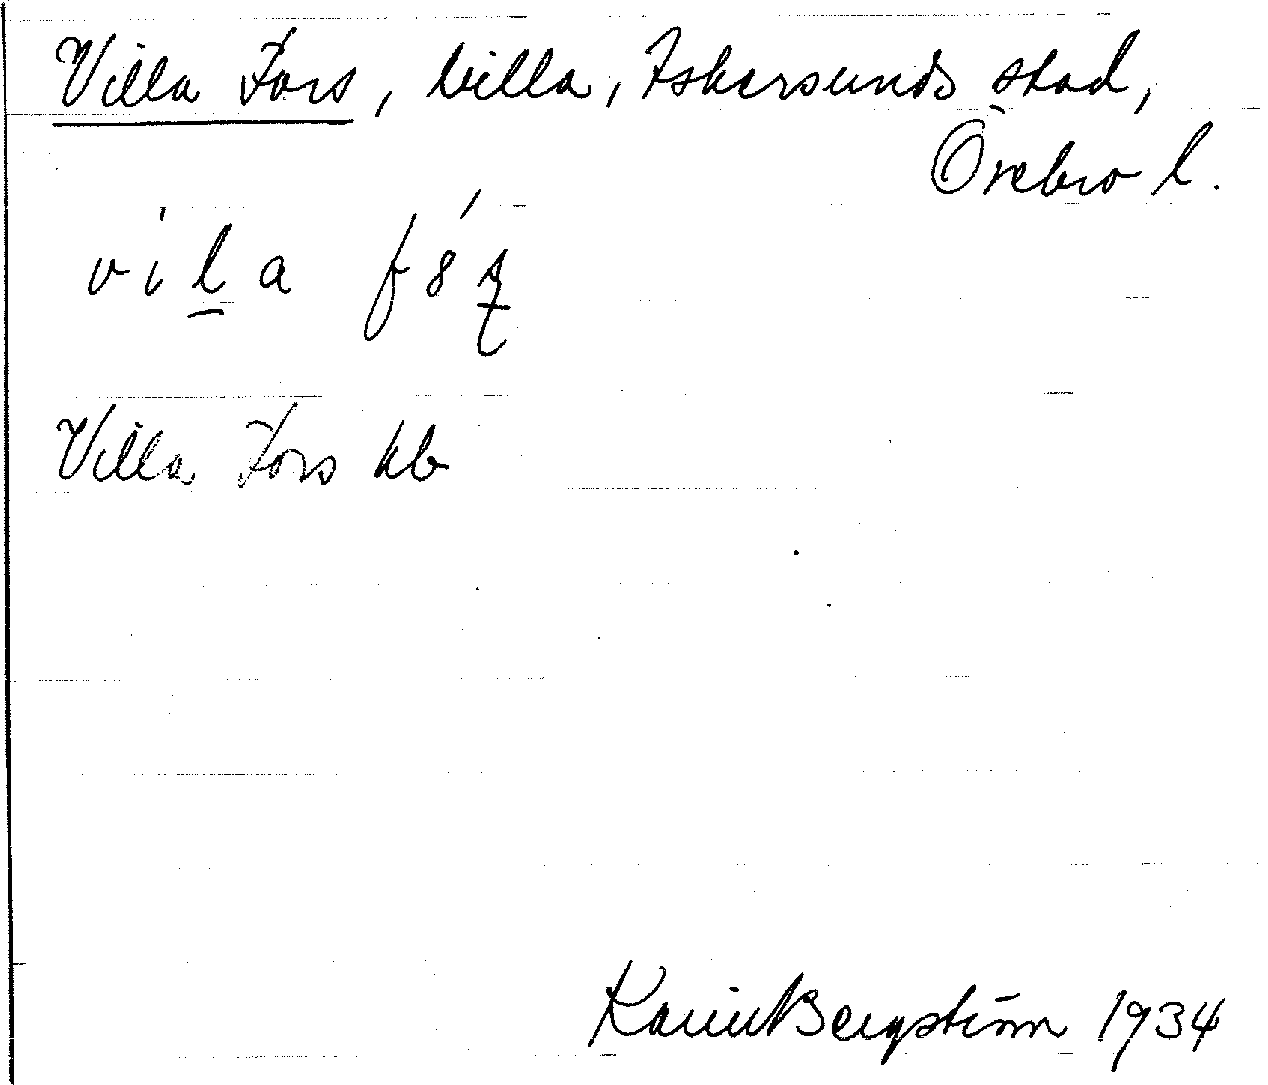 Villa Fors, villa, Askersunds stad,
Örebro l.
vila
Villa Fors kb
Karin Bergström 1934